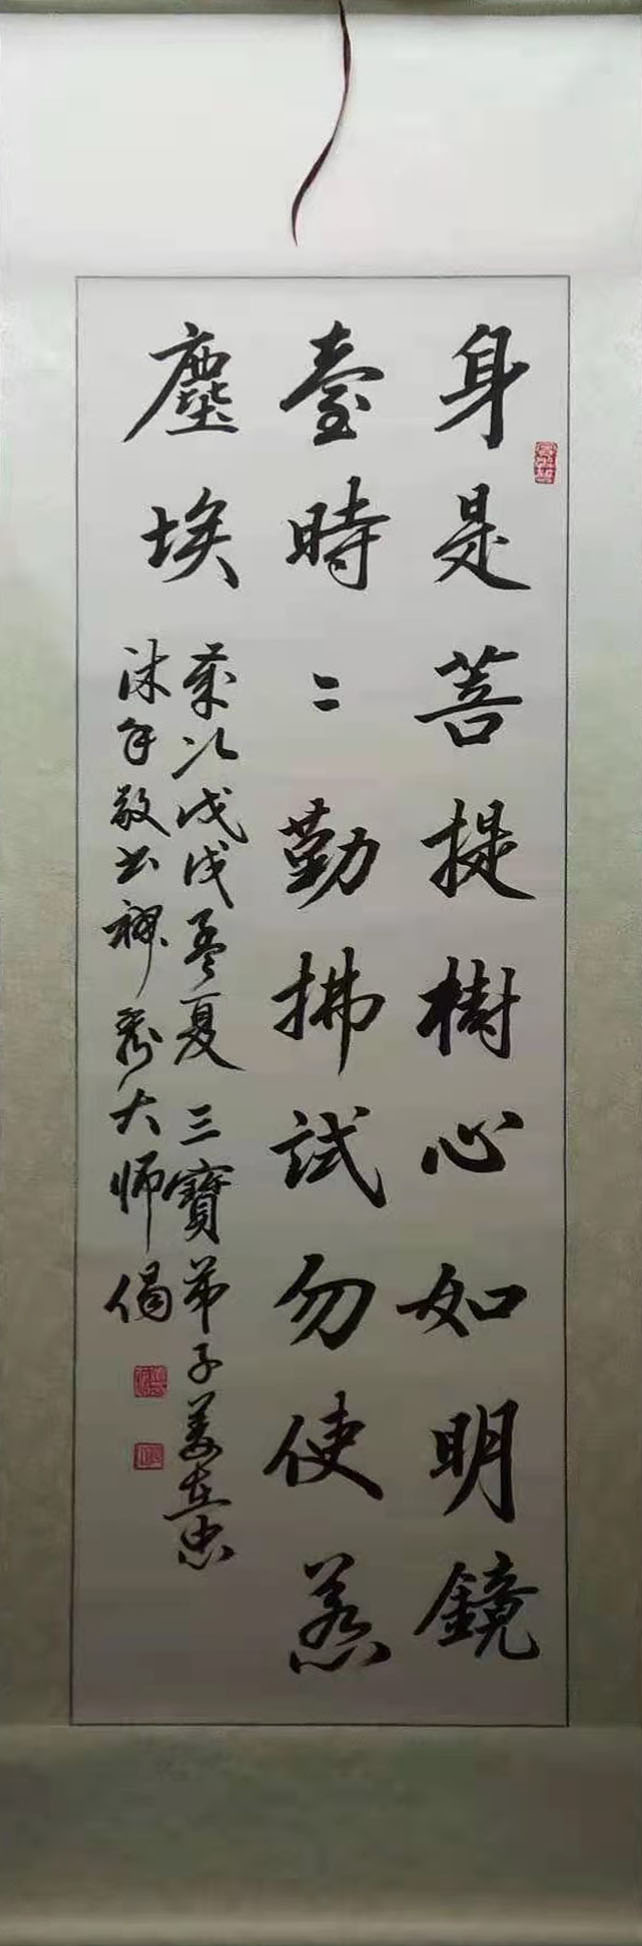 身是菩提樹心如明鏡
臺時〻勤拂試勿使惹
塵埃
歲次戊戌孟夏三寶弟子姜在忠
沐手敬書神秀大师偈